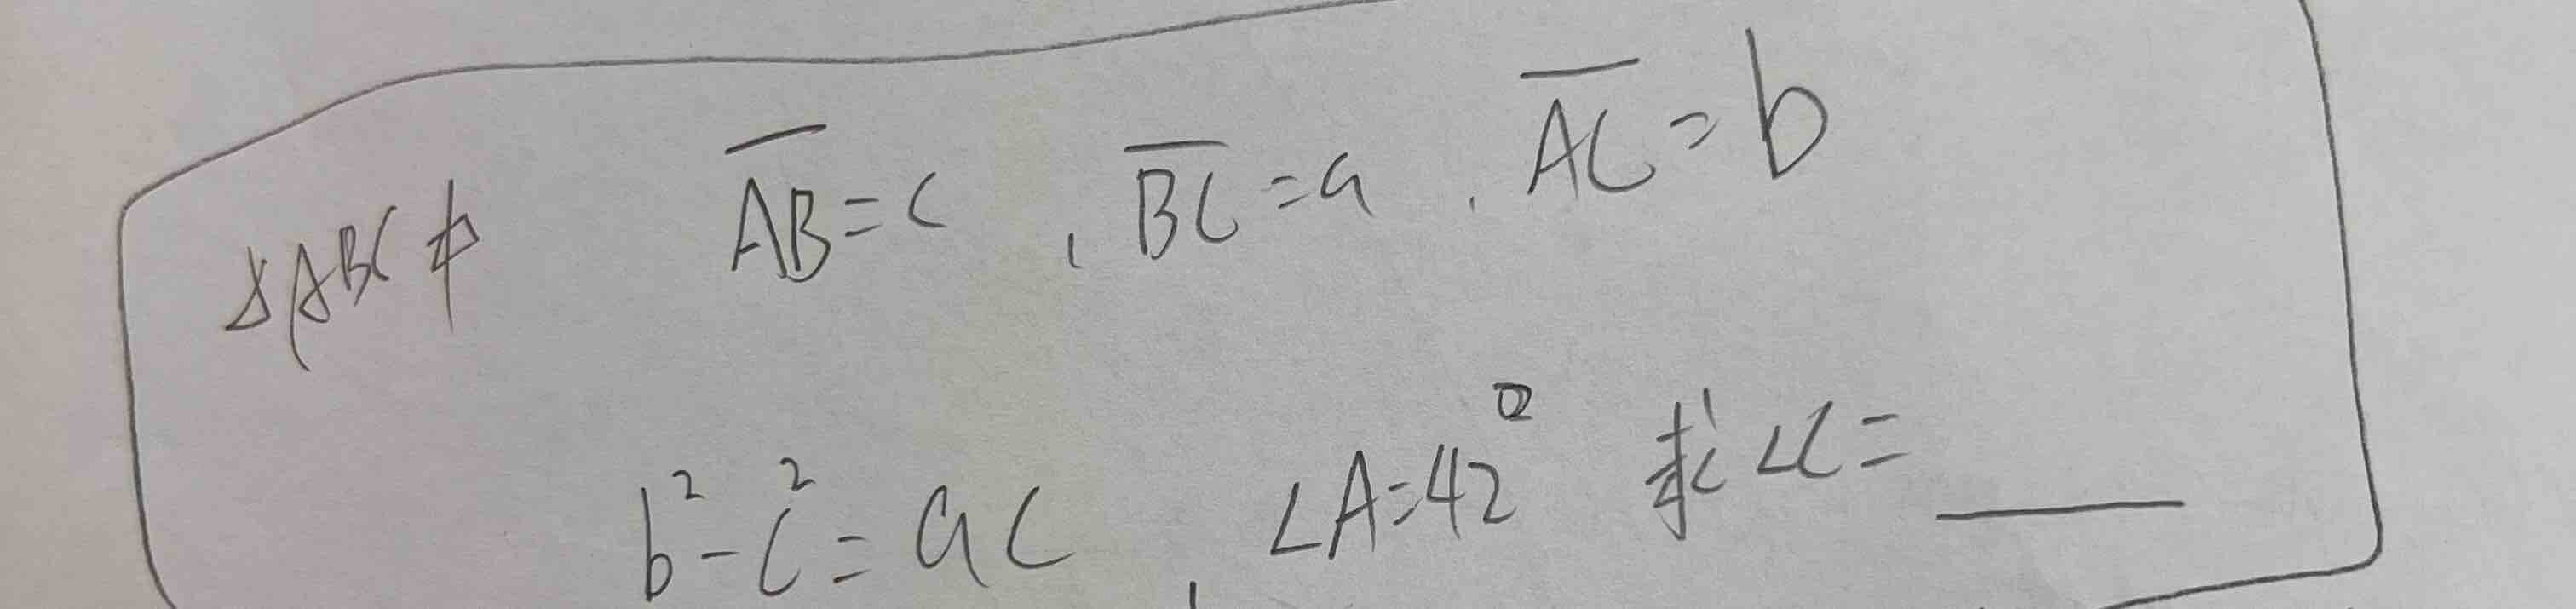 △ABC中 A̅B̅=c , B̅C̅=a , A̅C̅=b
b²-c²=ac , ∠A=42° 求∠C=____